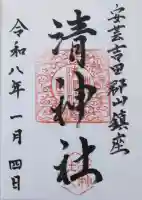 安芸吉田郡山鎮座
清神社
令和八年一月四日